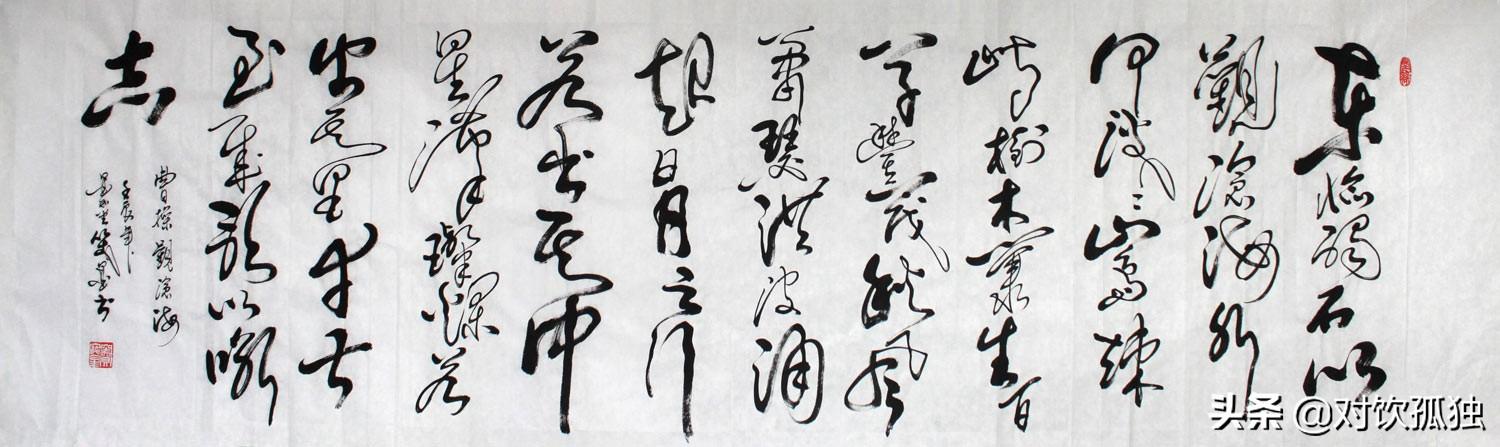 東臨碣石以
觀滄海水
何澹〻山島竦
峙樹木叢生百
草豐茂秋風
蕭瑟洪波涌
起日月之行
若出其中
星漢璨爛若
出其里幸甚
至哉歌以詠
志
曹操觀滄海
壬辰年
书
头条 @对饮孤独